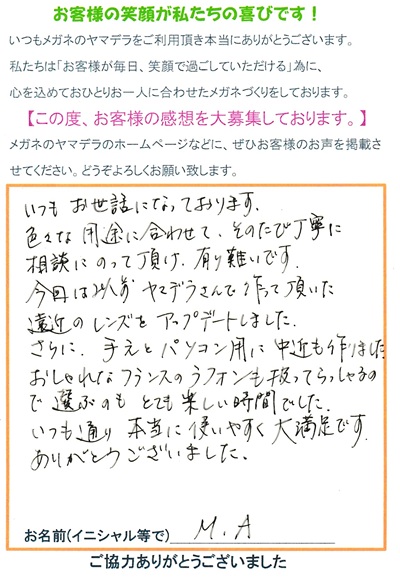 お客様の笑顔が私たちの喜びです！
いつもメガネのヤマデラをご利用頂き本当にありがとうございます。
私たちは「お客様が毎日、笑顔で過ごしていただける」為に、
心を込めておひとりお一人に合わせたメガネづくりをしております。
【この度、お客様の感想を大募集しております。】
メガネのヤマデラのホームページなどに、ぜひお客様のお声を掲載さ
せてください。どうぞよろしくお願い致します。
いつもお世話になっております。
色々な用途に合わせて、そのたび丁寧に
相談にのって頂け、有り難いです。
今回は以前ヤマデラさんで作って頂いた
遠近のレンズをアップデートしました。
さらに、手元とパソコン用に中近も作りました
おしゃれなフランスのラフォンも扱ってらっしゃるの
で選ぶのもとても楽しい時間でした。
いつも通り本当に使いやすく大満足です。
ありがとうございました。
お名前(イニシャル等で) M.A
ご協力ありがとうございました